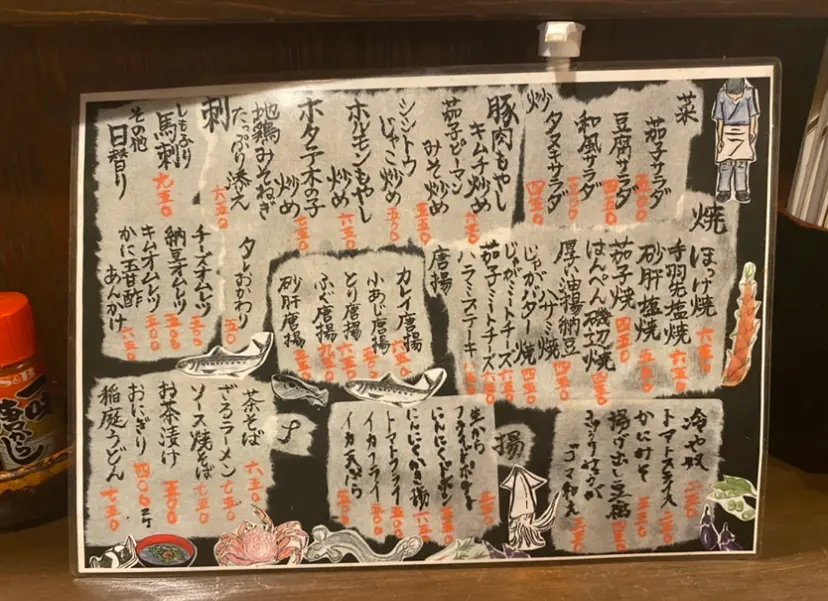 菜
茄子サラダ
五五〇
豆腐サラダ
五五〇
和風サラダ
タヌキサラダ
四五〇
炒
豚肉もやし
キムチ炒め
六五〇
茄子ピーマン
みそ炒め
五五〇
シシトウ
じゃこ炒め
五五〇
ホルモンもやし
炒め
六五〇
ホタテ木の子
炒め
七五〇
地鶏みそねぎ
たっぷり添え
六五〇
刺
しもふり
馬刺
九五〇
その他
日替り
焼
ほっけ焼
六五〇
手羽先塩焼
六五〇
砂肝塩焼
五五〇
茄子焼
四五〇
はんぺん磯辺焼
四五〇
厚い油揚納豆
ハサミ焼
四五〇
じゃがバター
四五〇
じゃがミートチーズ
五五〇
茄子ミートチーズ
六五〇
ハラミステーキ
唐揚
カレイ唐揚
六五〇
小あじ唐揚
五五〇
とり唐揚
六五〇
ふぐ唐揚
九五〇
砂肝唐揚
五五〇
タレおかわり
五〇
チーズオムレツ
五五〇
納豆オムレツ
五五〇
キムオムレツ
五五〇
かに玉甘酢
あんかけ
六五〇
冷や奴
トマトスライス
三五〇
かにみそ
揚げ出し豆腐
四五〇
ゴマ和え
揚
フライドポテト
にんにくかき揚
トマトフライ
五五〇
イカフライ
五五〇
イカ天ぷら
五五〇
〆
茶そば
六五〇
ざるラーメン
七五〇
ソース焼そば
七五〇
お茶漬け
五五〇
おにぎり
四〇〇
2ケ
稲庭うどん
七五〇
S&B
一味
唐がらし